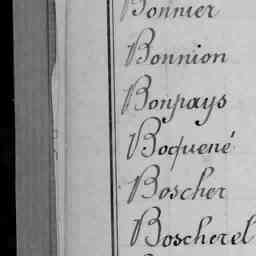 Bonnier
Bonnion
Bonpays
Boquené
Boscher
Boscherel